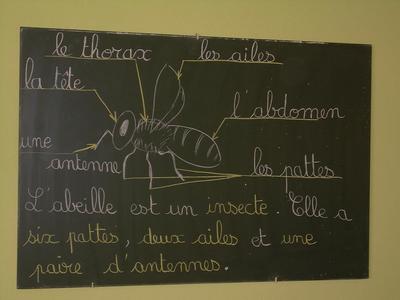 le thorax
les ailes
la tête
l'abdomen
une
antenne
les pattes
L'abeille est un insecte. Elle a
six pattes, deux ailes et une
paire d'antennes.